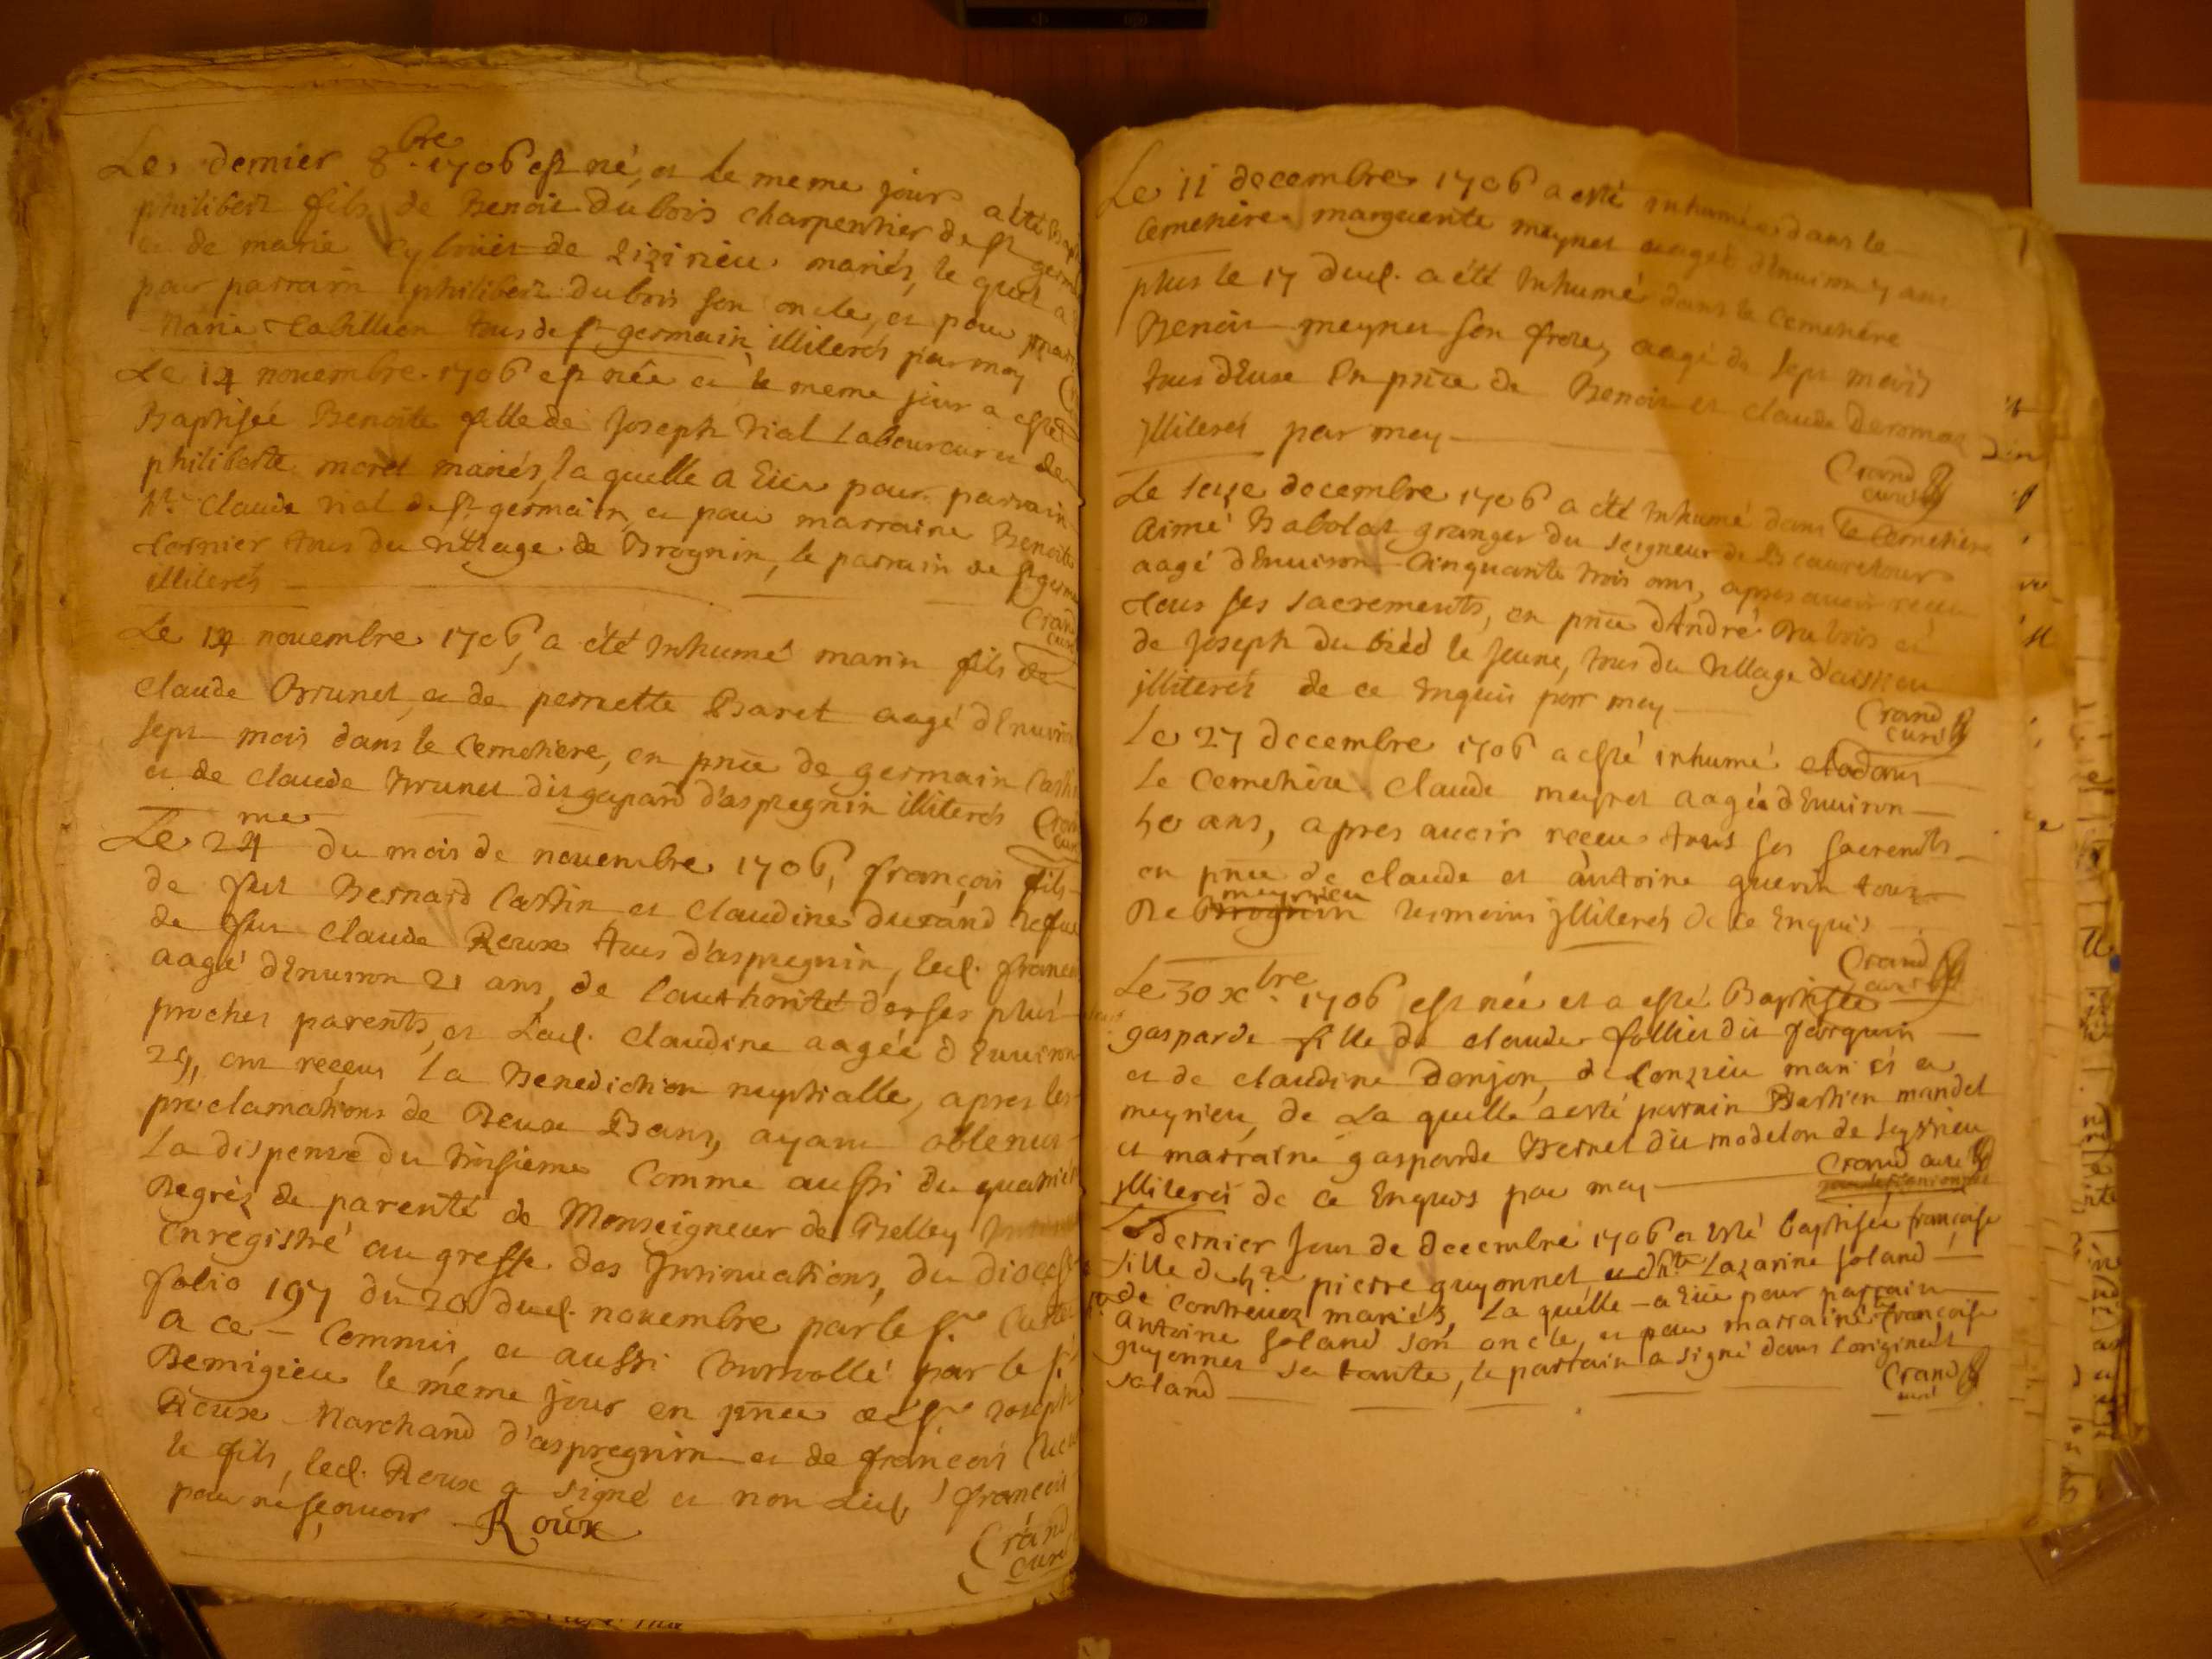 Le dernier 8.bre 1706 est né, et le meme jour a été Bap
philibert fils de Benoit Dubois charpentier de St germ
et de marie de Lizirieu. mariés, le quel a
pour parrain philibert dubois son oncle, et pour mar
Marie Cabillion tous de St germain illiterés par moy
Le 14 novembre 1706 est née et le meme jour a esté
Baptisée Benoite fille de Joseph Vial Laboureur et de
philiberte morel mariés, la quelle a Eüe pour parrain
hte Claude Vial de St germain, et pour marraine Benoite
Cornier tous du village de Brognin, le parrain de St germ
illiterés
Crand
curé
Le 14 novembre 1706, a été Inhumé marin fils de
Claude Brunet, et de pernette Baret aagé d'Enviro
sept mois dans le Cemetiere, en pnce de germain Cast
et de Claude Brunet dit gapard d'aspregnin illiterés
Crand
curé
Le 24me du mois de novembre 1706, françois fils
de feu Bernard Castin et Claudine durand vefve
de feu Claude Roux tous d'aspregnin, led. francoi
aagé d'Environ 21 ans, de l'authorité de ses plus
proches parents, et Lad. Claudine aagée d'Environ
29, ont reçeus la Benediction nuptialle, apres les
proclamations de Deux Bans, ayant obtenus
La dispense du troisieme Comme aussi du quatrie
Degrez de parenté de Monseigneur de Belley
Enregistré au greffe des Insinuations, du dioces
folio 197 du 20 dud. novembre par le Sr
a ce - Commis, et aussi Controllé par le Sr
Demigieu le meme jour en pnce de Sr Joseph
Roux Marchand d'aspregnin et de francois
le fils, led. Roux a signé et non Led. francois
pour ne sçavoir Roux
Crand
curé
Le 11 decembre 1706 a esté inhumée dans le
Cemetiere marguerite meynet aagée d'Environ 7 ans
plus le 17 dud. a été Inhumé dans le Cemetiere
Benoit meynet son frere, aagé de sept mois
tous d'Euse En pnce de Benoit et Claude Deromaz
Jlliterés par moy
Crand
curé
Le seize decembre 1706 a été Inhumé dans le Cemetiere
Aimé Babolat granger du seigneur de Beauretour
aagé d'Environ Cinquante trois ans, apres avoir reçeu
tous ses sacrements, en pnce d'André Dubois et
de Joseph du bied le Jeune, tous du village d'aissieu
jlliterés de ce Enquis par moy
Crand
curé
Le 27 decembre 1706 a esté inhumé dans
Le Cemetiere Claude meynet aagée d'Environ
50 ans, apres avoir receus tous ses sacremts
en pnce de Claude et antoine guerin tous
De Brognin meyrieu tesmoins jlliterés de ce Enquis
Crand
curé
Le 30 xbre 1706 est née et a esté Baptisée
gasparde fille de claude follier dit Jorquin
et de claudine donjon, de Conzieu mariés a
meyrieu, de La quelle a esté parrain Bastien mandel
et marraine gasparde Bernel du modelon de seyssieu
jlliterés de ce Enquis par moy
Crand curé
Le dernier Jour de decembre 1706 a esté baptisée françoise
fille de hte pierre guyonnet et dhte Lazarine soland
de Contrevoz mariés, La quelle a Eüe pour parrain
Antoine soland son oncle, et pour marraine françoise
guyonnet sa tante, le parrain a signé dans l'original
soland
Crand
curé